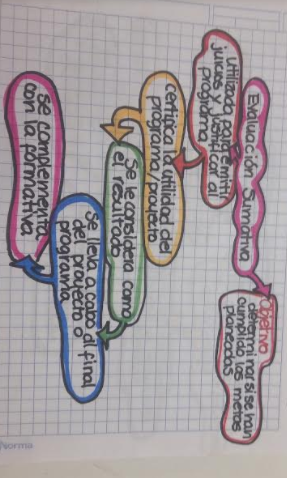 Evaluación Sumativa
Objetivo
determinar si se han
cumplido las metas
planeadas
utilizada para emitir
juicios y justificar el
programa
certifica la utilidad del
programa o proyecto
Se le considera como
el resultado
Se lleva a cabo al final
del proyecto o
programa
se complementa
con la formativa
Norma